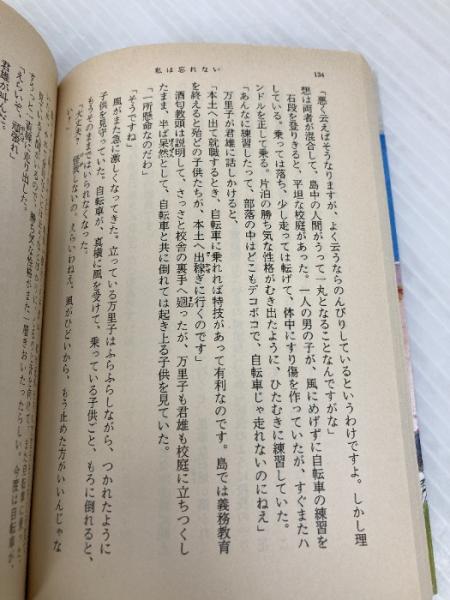 134
私は忘れない
「悪く云えばそうなりますが、よく云うならのんびりしているというわけですよ。しかし理
想は両者が混合して、島中の人間がうって一丸となることなんですがな」
石段を登りきると、平坦な校庭があった。一人の男の子が、風にめげずに自転車の練習を
している。乗っては落ち、少し走っては転げて、体中にすり傷を作っていたが、すぐまたハ
ンドルを正して乗る。片泊の勝ち気な性格がむき出たように、ひたむきに練習していた。
「あんなに練習したって、部落の中はどこもデコボコで、自転車じゃ走れないのにねえ」
万里子が君雄に話しかけると、
「本土へ出て就職するとき、自転車に乗れれば特技があって有利なのです。島では義務教育
を終えると殆どの子供たちが、本土へ出稼ぎに行くのです」
酒匂教頭は説明して、さっさと校舎の裏手へ廻ったが、万里子も君雄も校庭に立ちつくし
たまま、半ば呆然として、自転車と共に倒れては起き上る子供を見ていた。
「一所懸命なのだわ」
「そうですね」
風がまた急に激しくなってきた。立っている万里子はふらふらしながら、つかれたように
子供を見守っていた。自転車が、真横に風を受けて、乗っている子供ごと、もろに倒れると、
もうそのままではいられなくなった。
「大丈夫? 怪我しないの。えらいわねえ。風がひどいから、もう止めた方がいいんじゃな
い?」
「えらいぞ、頑張れ」
君雄が叫んだ。